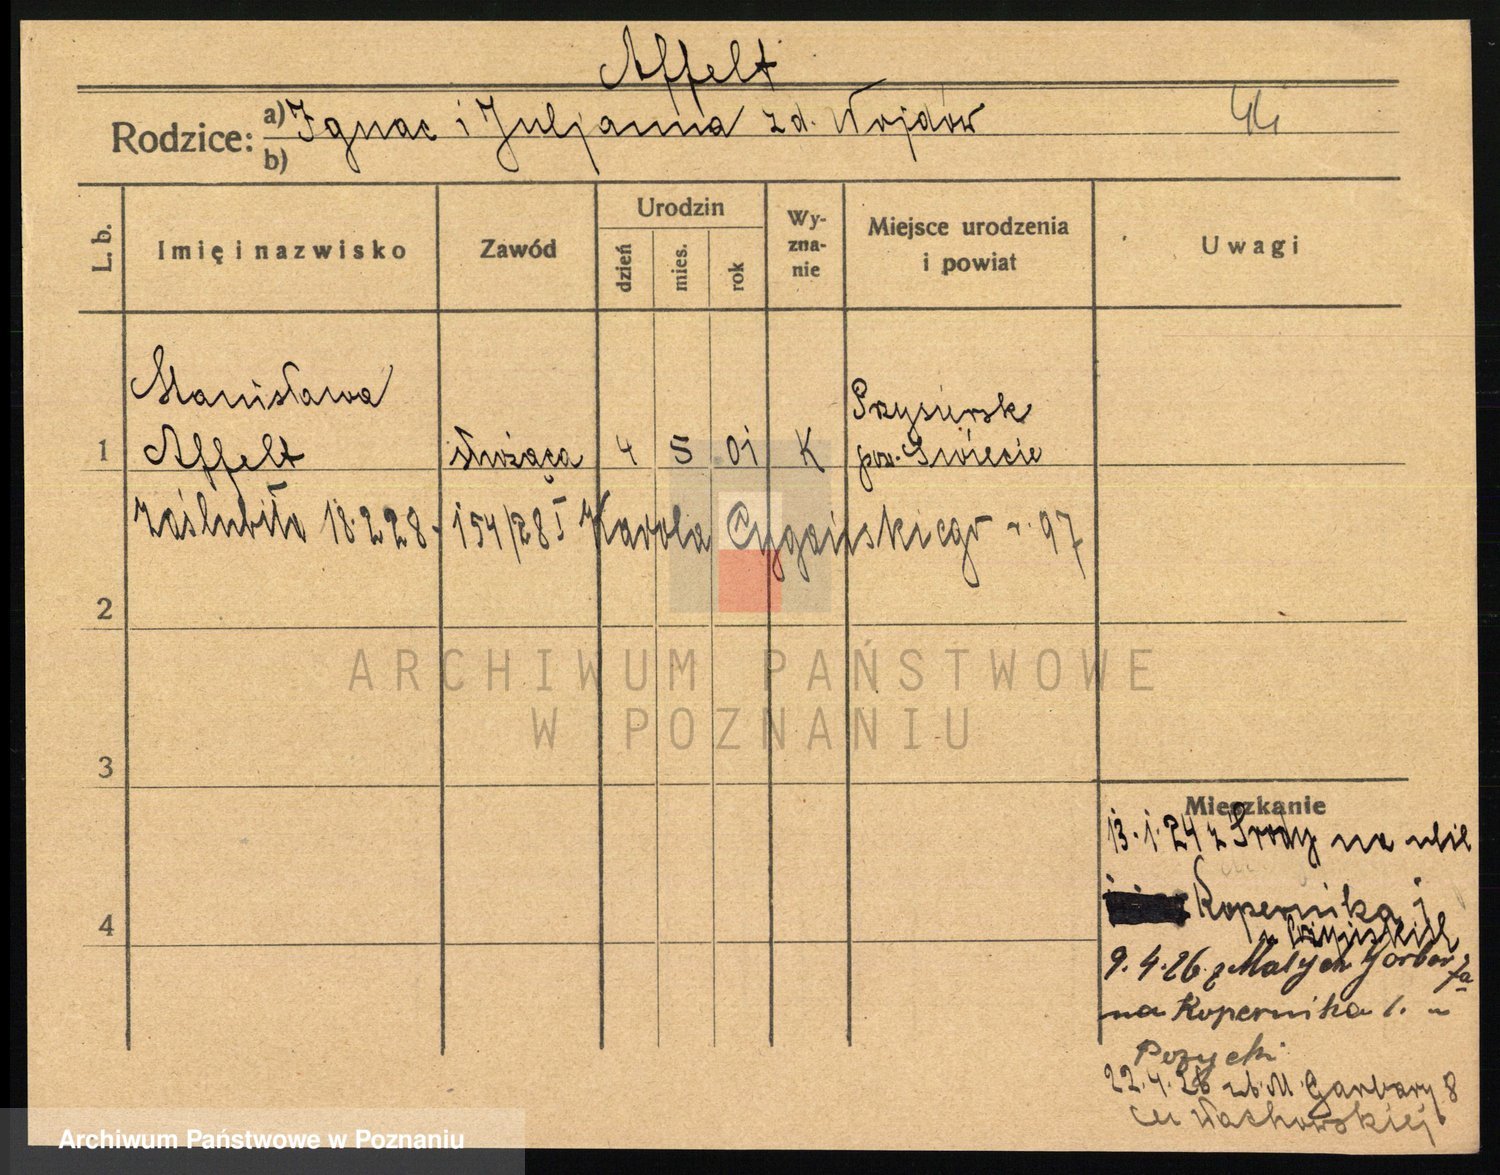 Affelt
Rodzice: a) Ignac i Juljanna z d. Wojdów
b)
L. b. Imię i nazwisko Zawód Urodzin dzień mies. rok Wy-zna-nie Miejsce urodzenia i powiat Uwagi
Stanisława Przysiersk
1 Affelt służąca 4 5 01 K pow. Świecie
zaślubiła 18.2.28. 154/28 I Karola Cygańskiego r. 97
2
ARCHIWUM PAŃSTWOWE
W POZNANIU
3
Mieszkanie
13.1.24 z Środy na ulil
Kopernika 1
4
9.4.26. z Małych Garbar 7a
na Kopernika 1. u
22.4.26 ul. M. Garbary 8
Wachowskiej
Archiwum Państwowe w Poznaniu